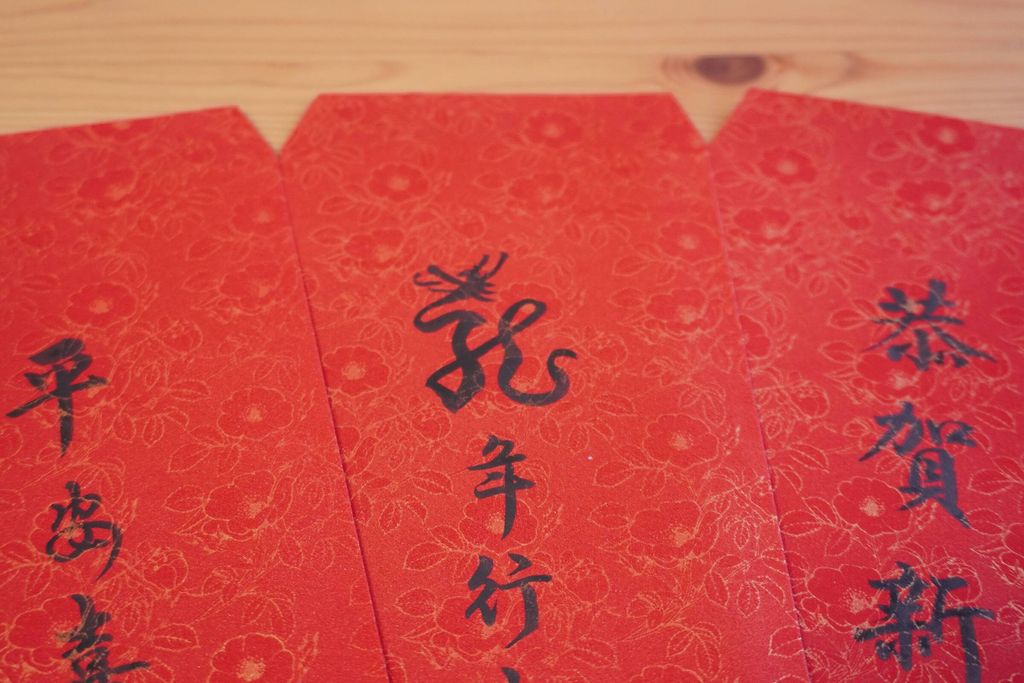 恭賀新
龍年行
平安喜